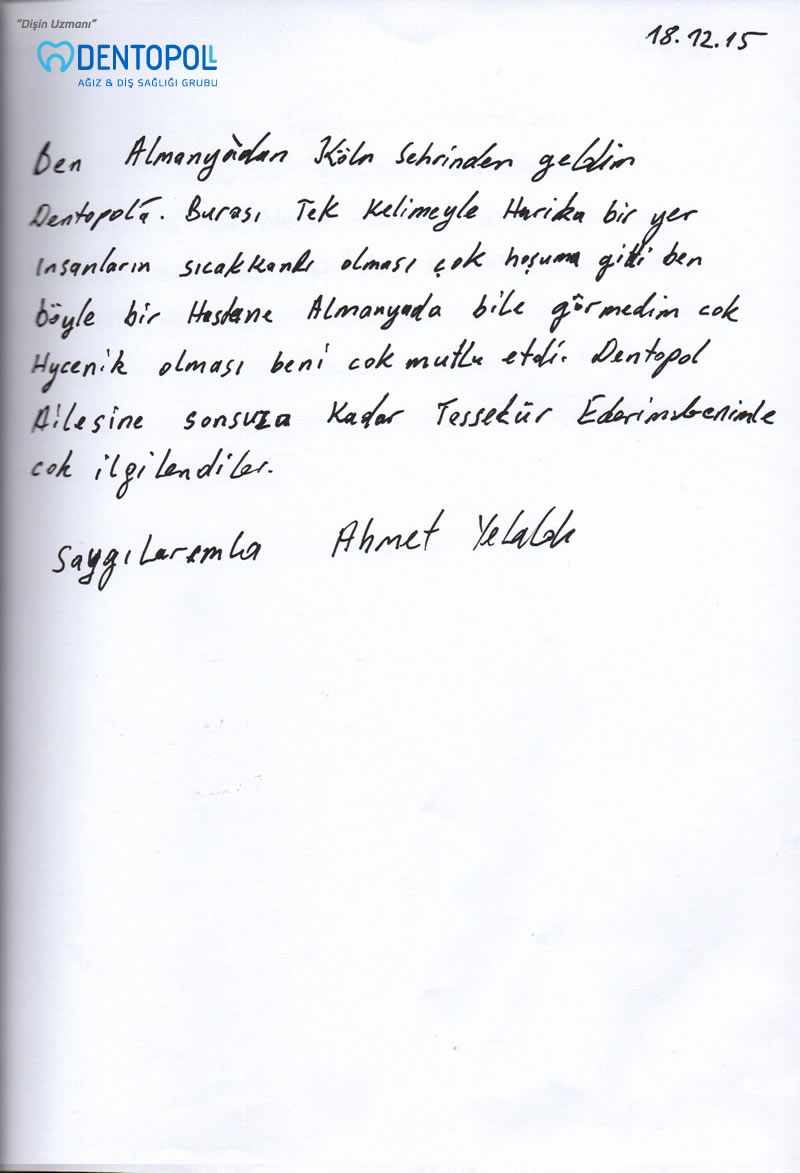 "Dişin Uzmanı"
DENTOPOLL
AĞIZ & DİŞ SAĞLIĞI GRUBU
18.12.15
Ben Almanya'dan Köln Sehrinden geldim
Dentopol'a. Burası Tek Kelimeyle Harika bir yer
insanların sıcakkanlı olması çok hoşuma gitti ben
böyle bir Hastane Almanyada bile görmedim cok
Hycenik olması beni cok mutlu etdi. Dentopol
Ailesine sonsuza Kadar Tessekür Ederim benimle
cok ilgilendiler.
Saygılarımla Ahmet